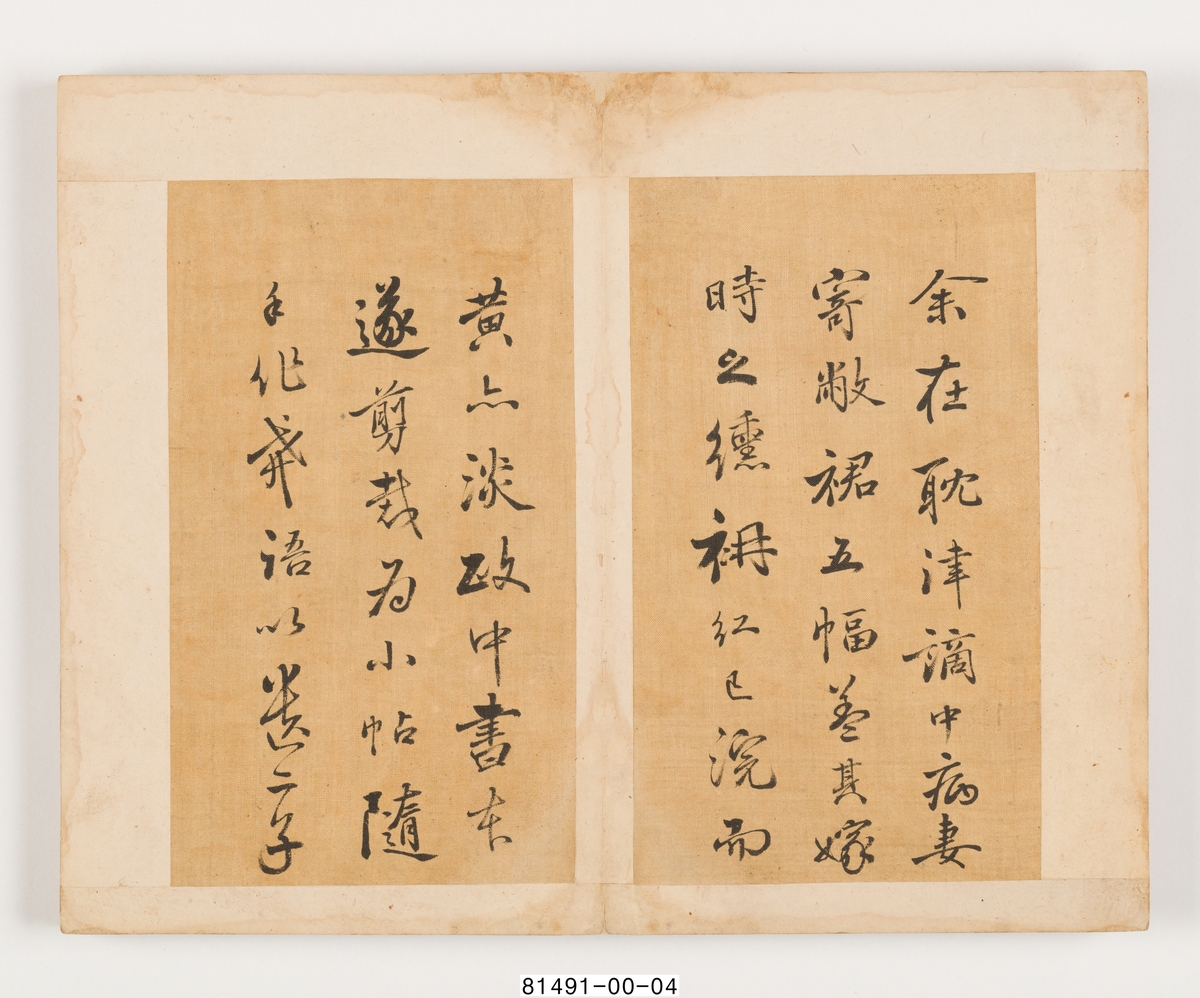 余在耽津謫中病妻
寄敝裙五幅盖其嫁
時之纁袡紅已浣而
黃亦淡政中書本
遂剪裁爲小帖隨
手作戒語以遺二子
81491-00-04